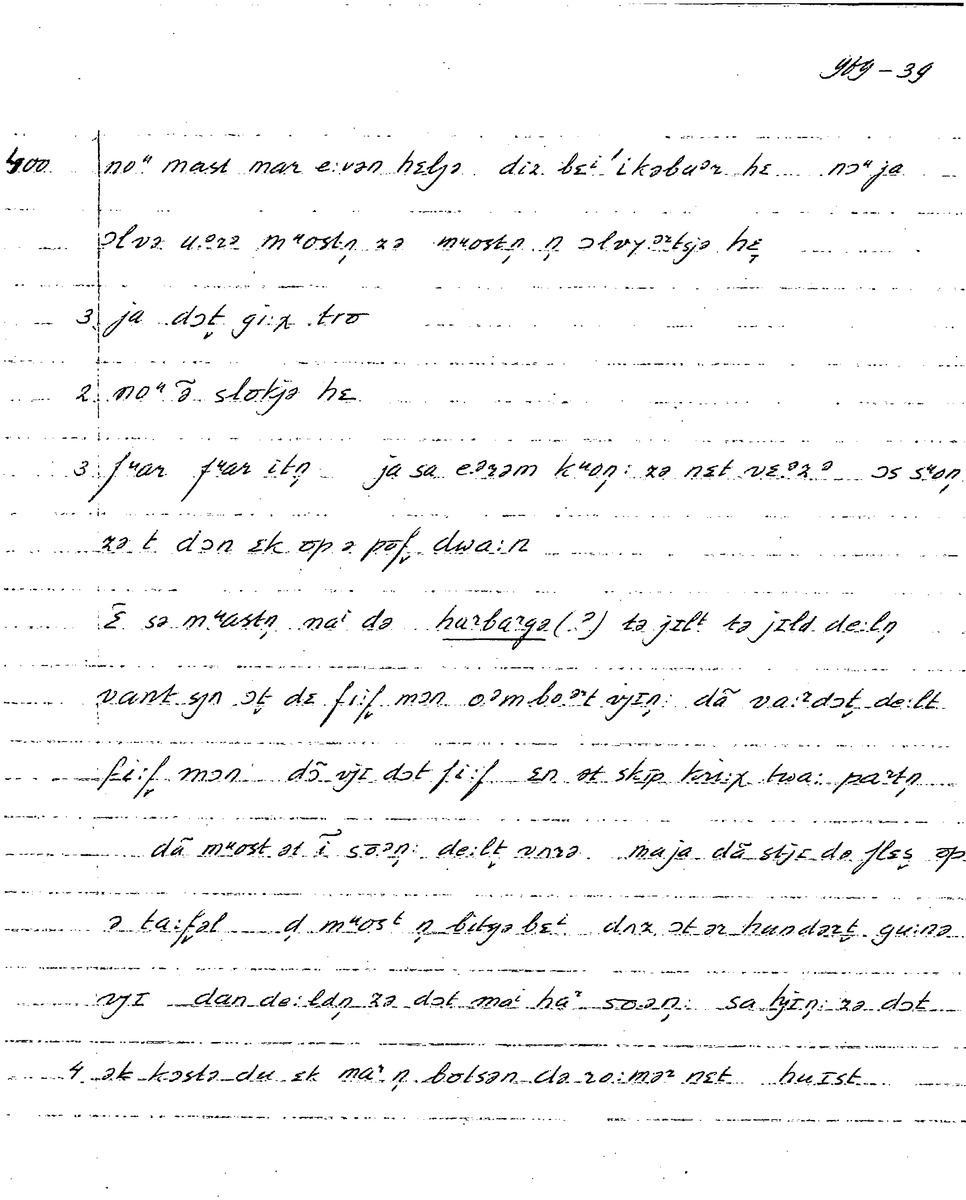 969-39
400 noᵘ mast mar e:vən hɛlpə diz bɛⁱ'ikəbuᵊr hɛ nɔᵘ ja
ɔlvə u:ərə mᵘostn̩ zə mᵘostn̩ n̩ ɔlvyᵊrtsjə hɛ
3. ja dɔt̬ gi:χ tro
2 noᵘ ə̃ slokjə hɛ
3 fᵘar fᵘar itn̩ ja sa eərəm kᵘon̩: zə nɛt vɛ:əzə ɔs sᵘon̩
zə t dɔn ɛk op ə pof̬ dwa:n
ɛ̃ sə mᵘastn̩ naⁱ də haʳbaʳgə (?) tə jɪlt tə jɪld de:ln̩
vant syn ɔt̬ dɛ fi:f̬ mɔn oəmboᵊrt vyɪn̩: dã va:ʳdɔt̬ de:lt
fi:f̬ mɔn dɔ̃ vyɪ dɔt fi:f ɛn ət skɪp kri:χ twa: paʳtn̩
dã mᵘost ət ĩ soən̩: de:lt̬ vʌrə ma ja dã stjɛ də flɛs̬ op
ə ta:f̬əl d̩ mᵘost n̩ bityə bɛⁱ dʌz ɔt ər hundərt̬ gu:nə
vyɪ dan de:ldn̩ zə dɔt maⁱ haʳ soən̩: sa lyɪn̩: zə dɔt
4 ək kəstə du ɛk maʳ n̩ botsən də ro:mər nɛt huɪst